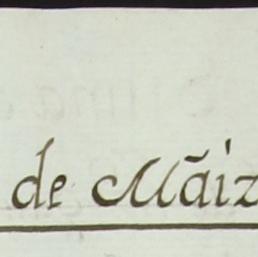 de Mãiz